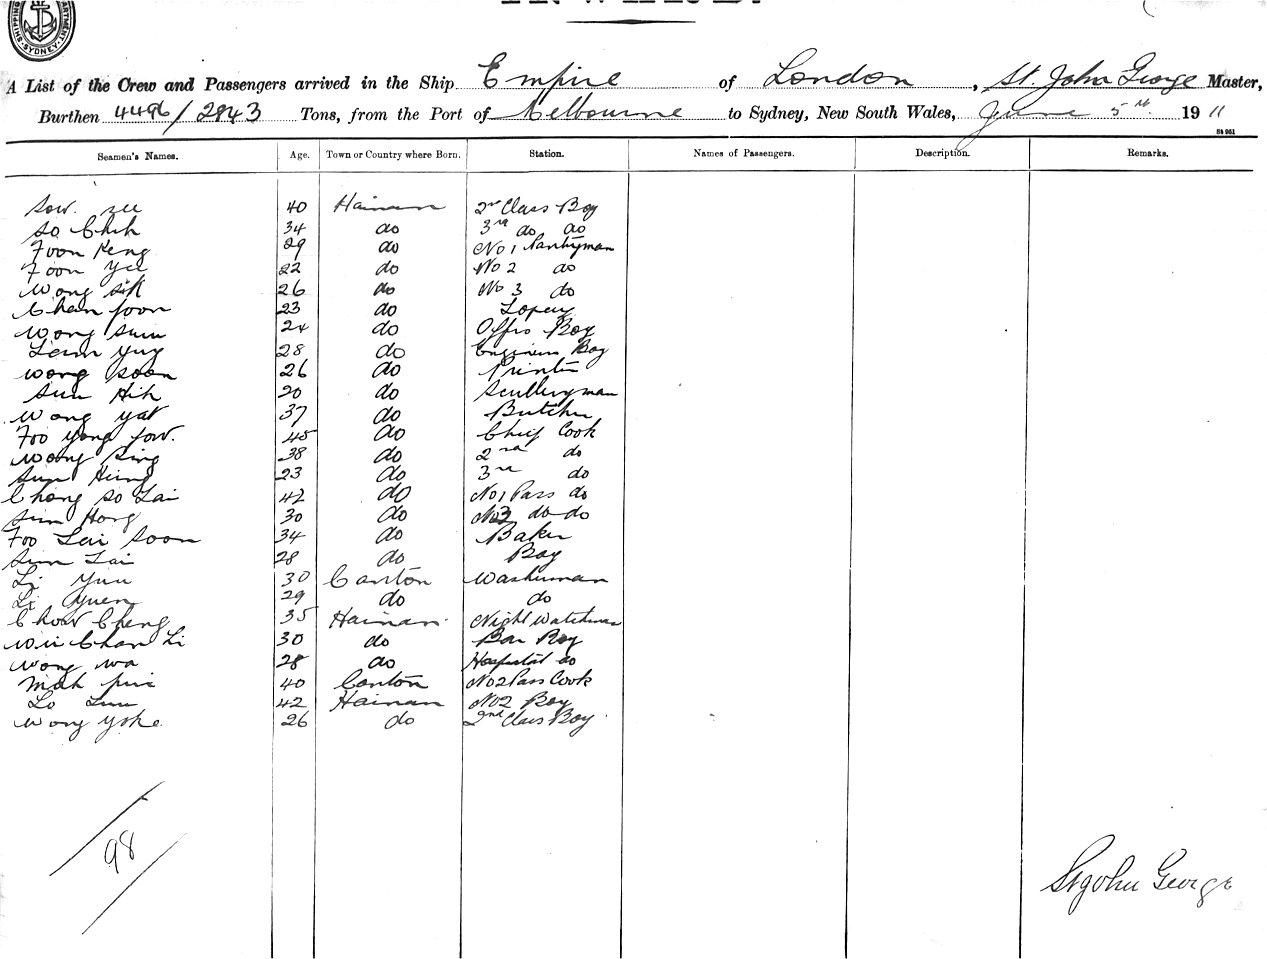 A List of the Crew and Passengers arrived in the Ship Empire of London, St. John George Master,
Burthen 4496/2843 Tons, from the Port of Melbourne to Sydney, New South Wales, June 5th 1911
Seamen's Names. Age. Town or Country where Born. Station. Names of Passengers. Description. Remarks.
Sow 40 Hainan 2nd Class Boy
So Chih 34 do 3rd do do
Foon Keng 29 do No 1 Pantryman
Foon Yee 22 do No 2 do
Wong Sik 26 do No 3 do
Chan foon 23 do
Wong Sum 24 do Offrs Boy
Leun Yuy 28 do Engineers Boy
Wong Soon 26 do Printer
Sun Hih 20 do Sculleryman
Wong Yat 37 do Butcher
Foo Yong fow. 45 do Chief Cook
Wong King 38 do 2nd do
Sun Hung 23 do 3rd do
Chong So Lai 42 do No 1 Pass do
Sim Hong 30 do No 3 do do
Foo Lai Soon 34 do Baker
Sim Lai 28 do Boy
Li Yuu 30 Canton Washman
Li Yuen 29 do do
Chow Cheng 35 Hainan Night Watchman
Wii Chan Li 30 do Bar Boy
Wong Wa 28 do Hospital do
Mak pui 40 Canton No 2 Pass Cook
Lo 42 Hainan No 2 Boy
Wong Yoke 26 do 2nd Class Boy
98
St John George